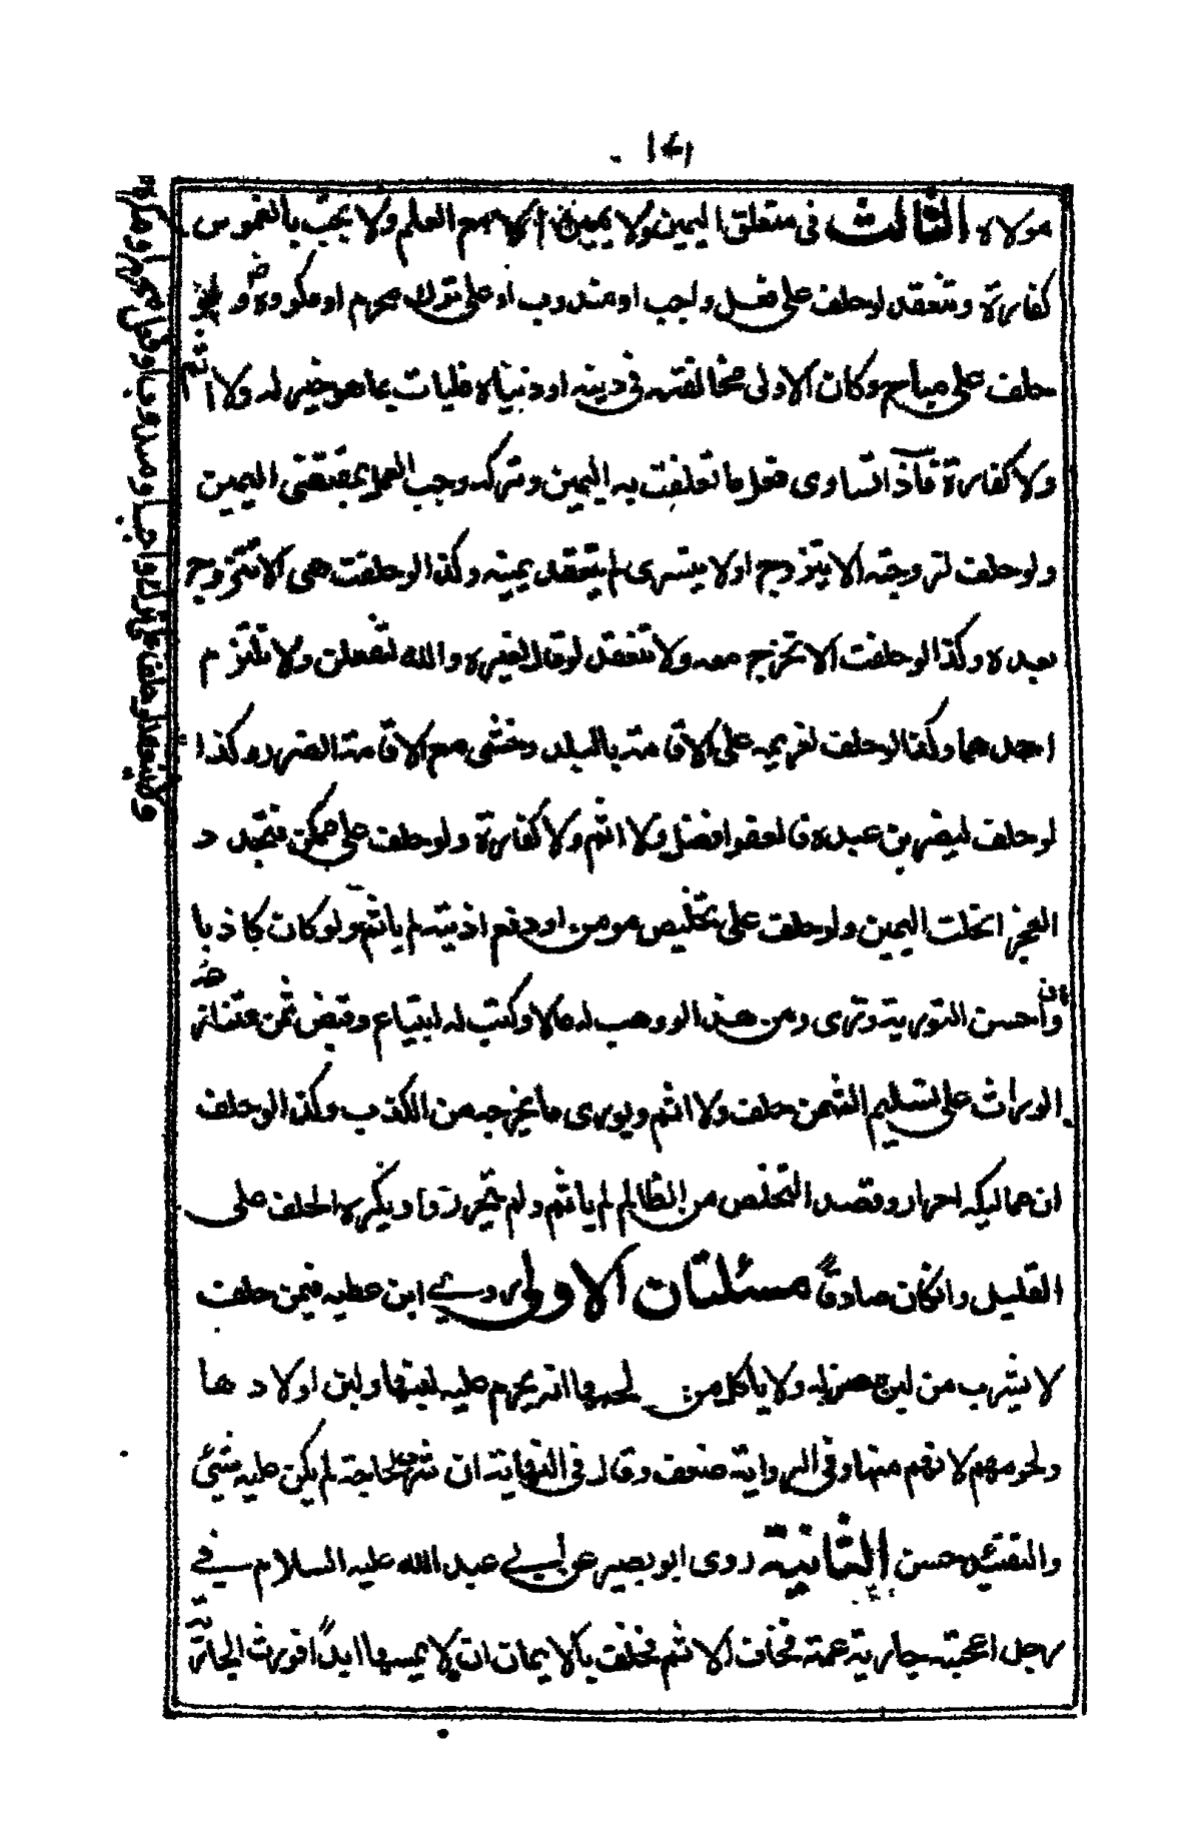 مولاه الثالث فى متعلق اليمين ولا يمين الا مع العلم ولا يجب بالغموس
كفارة وتنعقد لو حلف على فعل واجب او مندوب او على ترك محرم او مكروه ولو
حلف على مباح وكان الاولى مخالفته فى دينه او دنياه فليات بما هو خير له ولا اثم
ولا كفارة فاذا تساوى فعل ما تعلقت به اليمين وتركه وجب العمل بمقتضى اليمين
ولو حلف لزوجته الا يتزوج او لا يتسرى لم يتعقد يمينه وكذا لو حلفت هى الا تتزوج
بعده وكذا لو حلفت الا تخرج معه ولا تنعقد لو قال لغيره والله لتفعلن ولا تلتزم
احدهما وكذا لو حلف لغريمه على الاقامته بالبلد وخشى مع الاقامته الضرر وكذا
لو حلف ليضربن عبده فالعفو افضل ولا اثم ولا كفارة ولو حلف على ممكن فتجدد
العجز انحلت اليمين ولو حلف على تخليص مومن او دفع اذيته لم ياثم ولو كان كاذبا
وان احسن التورية ورى ومن هذا لو وهب له مالا وكتب له ابتياع وقبض ثمن فنازعه
الوراث على تسليم الثمن حلف ولا اثم ويورى ما يخرجه من الكذب وكذا لو حلف
ان مماليكه احرار وقصد التخلص من الظالم لم ياثم ولم يتحرروا ويكره الحلف على
القليل وان كان صادقاً مسئلتان الاولى روى ابن عطيه فيمن حلف
لا يشرب من لبن عنز له ولا ياكل من لحمها انه يحرم عليه لبنها ولبن اولادها
ولحومهم لانهم منها وفى الرواية ضعف وقال فى النهاية ان شرب لحاجته لم يكن عليه شئ
والتقييد حسن الثانية روى ابو بصير عن ابى عبد الله عليه السلام فى
رجل اعجبته جارية عمته فخاف الاثم فحلف بالايمان ان لا يمسها ابداً فورث الجارية